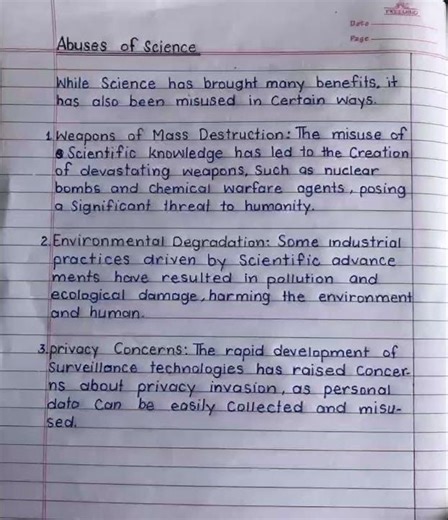 Date
Page
Abuses of Science
While Science has brought many benefits, it
has also been misused in Certain ways.
1. Weapons of Mass Destruction: The misuse of
Scientific knowledge has led to the Creation
of devastating weapons, Such as nuclear
bombs and Chemical warfare agents, posing
a Significant threat to humanity.
2. Environmental Degradation: Some industrial
practices driven by Scientific advance
ments have resulted in pollution and
ecological damage, harming the environment
and human.
3. privacy Concerns: The rapid development of
Surveillance technologies has raised Concer-
ns about privacy invasion, as personal
data Can be easily Collected and misu-
sed.